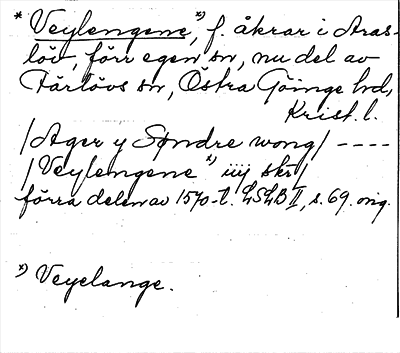 * Veylengene,*) f. åkrar i Aras-
löv, förr egen sn, nu del av
Färlövs sn, Östra Göinge hd,
Krist. l.
/Ager y Søndre wong/ ----
/Veylengene*) iiij skr/
förra delen av 1570-t. LSLB II, s. 69. orig.
*) Veyelange.